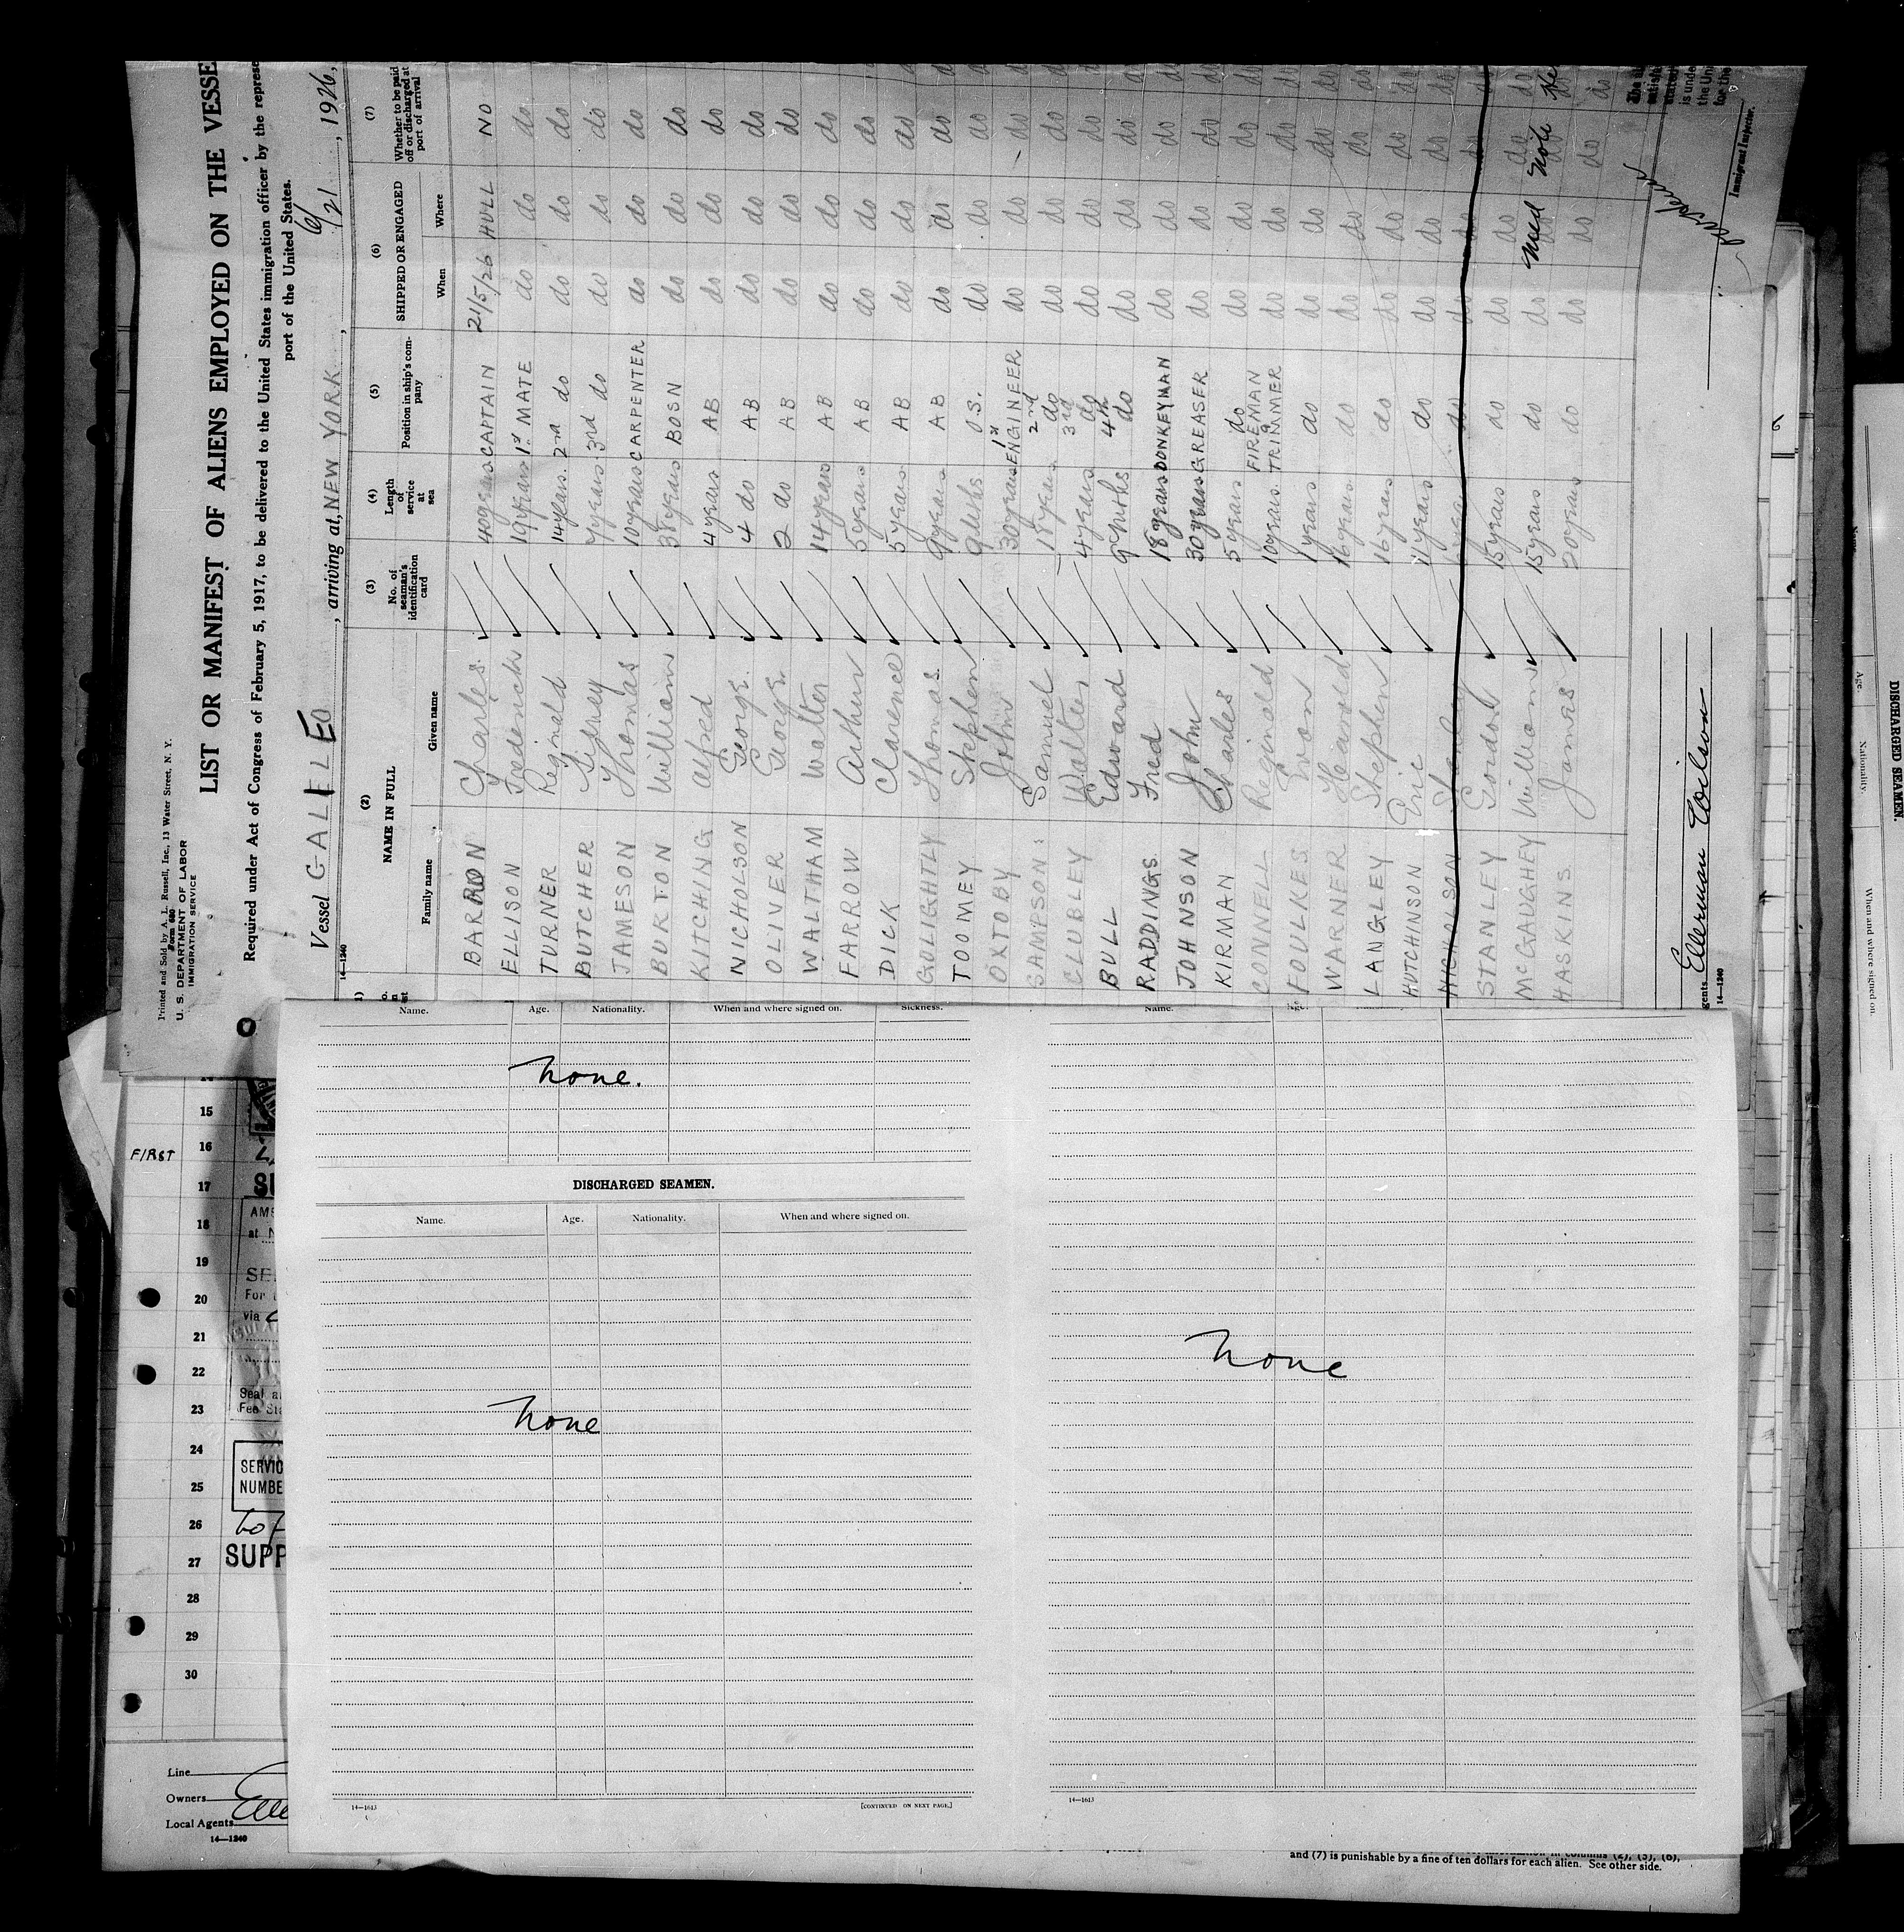 Printed and Sold by A. L. Russell, Inc., 13 Water Street, N. Y.
Form 680
U. S. DEPARTMENT OF LABOR
IMMIGRATION SERVICE
LIST OR MANIFEST OF ALIENS EMPLOYED ON THE VESSE
Required under Act of Congress of February 5, 1917, to be delivered to the United States immigration officer by the represe
port of the United States.
Vessel GALILEO, arriving at, NEW YORK, 6/21, 1926,
14—1240
(2) (3) (4) (5) (6) (7)
NAME IN FULL
No. of seaman's identification card
Length of service at sea
Position in ship's company
SHIPPED OR ENGAGED
Whether to be paid off or discharged at port of arrival
Family name Given name When Where
BARRON Charles 40 years CAPTAIN 21/5/26 HULL NO
ELLISON Frederick 19 years 1st MATE do do do
TURNER Reginald 14 years. 2nd do do do do
BUTCHER Sidney 7 years 3rd do do do do
JAMESON Thomas 10 years CARPENTER do do do
BURTON William 38 years BOSN do do do
KITCHING Alfred 4 years AB do do do
NICHOLSON George. 4 do AB do do do
OLIVER George. 2 do AB do do do
WALTHAM Walter 14 years AB do do do
FARROW Arthur 5 years AB do do do
DICK Clarence 5 years AB do do do
GOLIGHTLY Thomas. 9 years AB do do do
TOOMEY Stephen 9 mths O.S. do do do
OXTOBY John 30 years 1st ENGINEER do do do
SAMPSON Samuel years 2nd do do do do
CLUBLEY Walter 4 years 3rd do do do do
BULL Edward 9 mths 4th do do do do
RADDINGS Fred 18 years DONKEYMAN do do do
JOHNSON John 30 years GREASER do do do
KIRMAN Charles 5 years do do do do
CONNELL Reginald 10 years. FIREMAN & TRIMMER do do do
FOULKES Evan years do do do do
WARNER Harold 16 years do do do do
LANGLEY Stephen 16 years do do do do
HUTCHINSON Eric years do do do do
NICHOLSON Stanley do do do do
STANLEY Gordon 15 years do do do do
McGAUGHEY William 15 years do do do do
HASKINS James 20 years do do do do
Immigrant Inspector.
gents Ellerman Wilson
14—1240
Name. Age. Nationality. When and where signed on. Sickness.
none.
DISCHARGED SEAMEN.
Name. Age. Nationality. When and where signed on.
none
14—1613
[CONTINUED ON NEXT PAGE.]
Name. Age.
none
14—1613
15
FIRST 16
17
18
19
20
21
22
23
24
25
26
27
28
29
30
AMS
at
For
via
Seal a
Fee Sta
SERVIC
NUMBE
SUPP
Line
Owners
Local Agents Elle
14—1240
and (7) is punishable by a fine of ten dollars for each alien. See other side.
DISCHARGED SEAMEN.
Age. Nationality. When and where signed on.